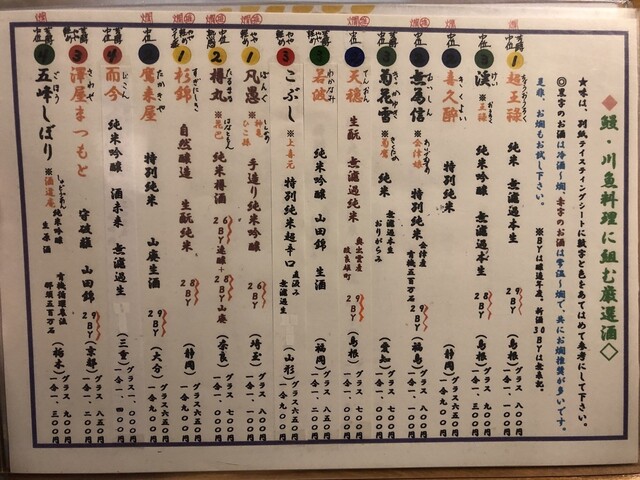 ◆鰻・川魚料理に組む厳選酒◇
★味は、別紙テイスティングシートに数字と色をあてはめて参考にして下さい。
◎黒字のお酒は冷酒〜燗、赤字のお酒は常温〜燗で、共にお燗推奨が多いです。
是非、お燗もお試し下さい。
※BYは醸造年度、新酒30BYは無表記。
1 超王禄 純米 無濾過本生 29BY (島根) グラス八〇〇円
3 渓 ※王禄 純米吟醸 無濾過本生 28BY (島根) グラス九〇〇円
2 喜久酔 きくよい 特別純米 (静岡) グラス六五〇円
2 無為信 むいしん ※会津娘 特別純米 会津産五百万石 29BY (福島) グラス七〇〇円
3 菊花雪 きっかゆき ※菊鷹 純米 無濾過本生 おりがらみ (愛知)
天穏 てんおん 生酛 無濾過純米 奥出雲産改良雄町 29BY (島根) グラス七〇〇円
若波 わかなみ 純米吟醸 山田錦 生酒 (福岡) グラス八五〇円
3 こぶし ※上喜元 特別純米超辛口 直汲み無濾過生 (山形) グラス六五〇円
1 凡愚 ぼんぐ ※神亀 ひこ孫 手造り純米吟醸 26BY (埼玉) グラス八〇〇円
2 樽丸 たるまる ※花巴 はなともえ 純米樽酒 26BY速醸+28BY山廃 (奈良) グラス七〇〇円
1 杉錦 すぎにしき 自然醸造 生酛純米 28BY (静岡) グラス六五〇円
鷹来屋 たかきや 特別純米 山廃生酒 29BY (大分) グラス六五〇円
4 而今 じこん 純米吟醸 酒未来 無濾過生 (三重)
3 澤屋まつもと さわや 守破離 山田錦 29BY (京都) グラス八五〇円
4 五峰しぼり ごほう ※酒遊庵 純米吟醸生原酒 有機循環農法那須五百万石 (栃木) グラス九〇〇円